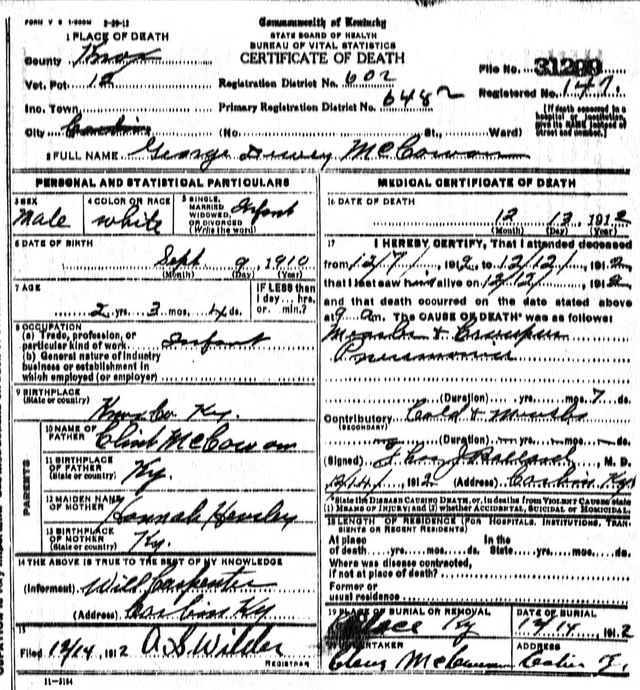 FORM V S 1-200M 2-29-12
Commonwealth of Kentucky
STATE BOARD OF HEALTH
BUREAU OF VITAL STATISTICS
CERTIFICATE OF DEATH
1 PLACE OF DEATH
County Knox
Vot. Pct 12
Inc. Town
City
Registration District No. 602
Primary Registration District No. 6482
File No. 31299
Registered No. 147.
(No. St., Ward)
[If death occurred in a hospital or institution, give its NAME instead of street and number.]
2 FULL NAME George Dewey McCowan
PERSONAL AND STATISTICAL PARTICULARS
3 SEX
Male
4 COLOR OR RACE
white
5 SINGLE, MARRIED WIDOWED, OR DIVORCED (Write the word)
Infant
6 DATE OF BIRTH
Sept 9, 1910
(Month) (Day) (Year)
7 AGE
2 yrs. 3 mos. 4 ds.
IF LESS than 1 day... hrs. or min.?
8 OCCUPATION
(a) Trade, profession, or particular kind of work Infant
(b) General nature of industry business or establishment in which employed (or employer)
9 BIRTHPLACE
(State or country) Knox Co Ky.
PARENTS
10 NAME OF FATHER Clint McCowan
11 BIRTHPLACE OF FATHER (State or country) Ky.
12 MAIDEN NAME OF MOTHER Hannah Hensley
13 BIRTHPLACE OF MOTHER (State or country) Ky.
14 THE ABOVE IS TRUE TO THE BEST OF MY KNOWLEDGE
(Informent) Will Carpenter
(Address) Corbin Ky
15
Filed 12/14, 1912 A S Wilder
REGISTRAR
11-3184
MEDICAL CERTIFICATE OF DEATH
16 DATE OF DEATH
12 13 1912
(Month) (Day) (Year)
17 I HEREBY CERTIFY, That I attended deceased
from 12/7/ 1912 to 12/12/ 1912
that I last saw him alive on 12/12/ 1912
and that death occurred on the date stated above
at 9 am. The CAUSE OF DEATH* was as follows:
Measles &
Pneumonia
(Duration) yrs. mos. 7 ds.
Contributory Cold &
(SECONDARY)
(Duration) yrs. mos. ds.
(Signed) M. D.
12/14/ 1912 (Address) Corbin Ky
*State the DISEASE CAUSING DEATH, or, in deaths from VIOLENT CAUSES state (1) MEANS OF INJURY; and (2) whether ACCIDENTAL, SUICIDAL or HOMICIDAL.
18 LENGTH OF RESIDENCE (FOR HOSPITALS, INSTITUTIONS, TRANSIENTS OR RECENT RESIDENTS)
At place of death yrs. mos. ds. In the State yrs. mos. ds.
Where was disease contracted, if not at place of death?
Former or usual residence
19 PLACE OF BURIAL OR REMOVAL
Ky
DATE OF BURIAL
12/14, 1912
UNDERTAKER
McCowan
ADDRESS